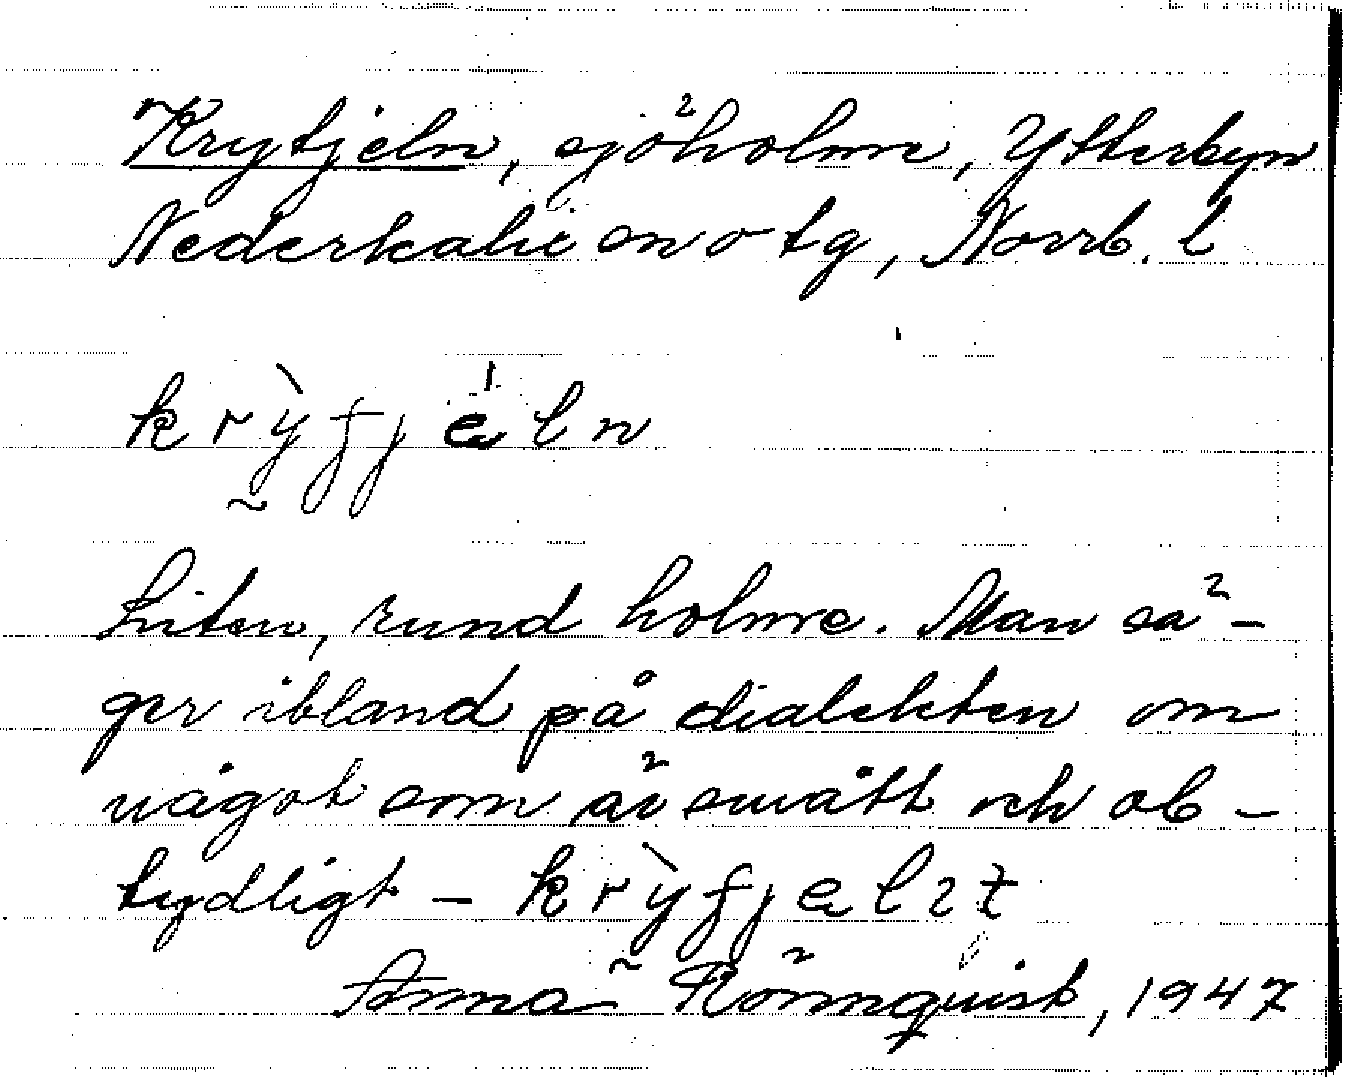 Krytjeln, sjöholme, Ytterbyn
Nederkalix snötg, Norrb. l
krỳfjeln
Liten, rund holme. Man sä-
ger ibland på dialekten om
något som är smått och ob-
tydligt – krỳfjelıt
Anna Rönnquist, 1947